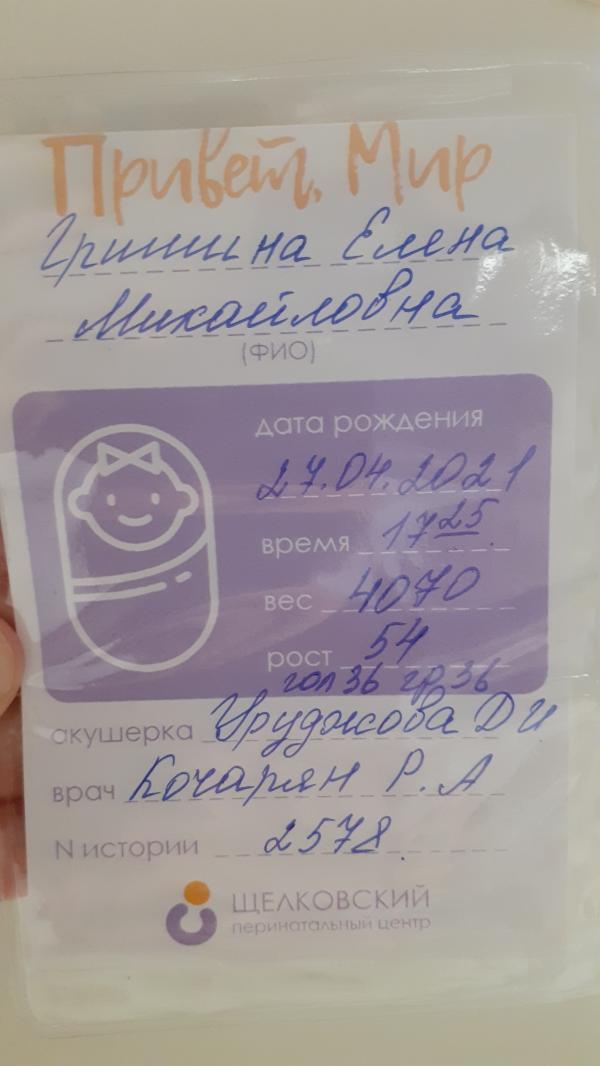 Привет, Мир
Гришина Елена
Михайловна
(ФИО)
дата рождения
27.04.2021
время 17 25
вес 4070
рост 54
гол 36 гр 36
акушерка Уруджова Д И
врач Кочарян Р. А
N истории 2578
ЩЕЛКОВСКИЙ
перинатальный центр